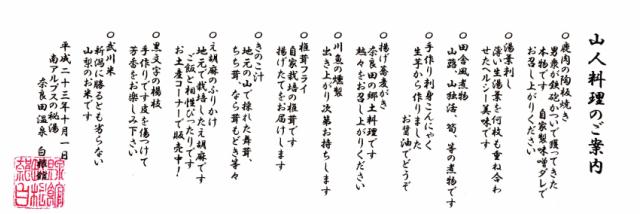 山人料理のご案内
○鹿肉の陶板焼き
男衆が鉄砲かついで獲ってきた
本物です 自家製味噌ダレで
お召し上がりください
○湯葉刺し
薄い生湯葉を何枚も重ね合わ
せたヘルシー美味です
○田舎風煮物
山蕗、山独活、筍、等の煮物です
○手作り刺身こんにゃく
生芋から作りました
お醤油でどうぞ
○揚げ蕎麦がき
奈良田の郷土料理です
熱々をお召し上がりください
○川魚の燻製
出き上がり次第お持ちします
○椎茸フライ
自家栽培の椎茸です
揚げたてをお届けします
○きのこ汁
地元の山で採れた舞茸、
もち茸、なら茸もどき等々
○え胡麻のふりかけ
地元で栽培したえ胡麻です
ご飯と相性ぴったりです
お土産コーナーで販売中！
○黒文字の楊枝
手作りです皮を傷つけて
芳香をお楽しみ下さい
○武川米
新潟に勝るとも劣らない
山梨のお米です
平成二十三年十月一日
南アルプスの秘湯
奈良田温泉 白根館